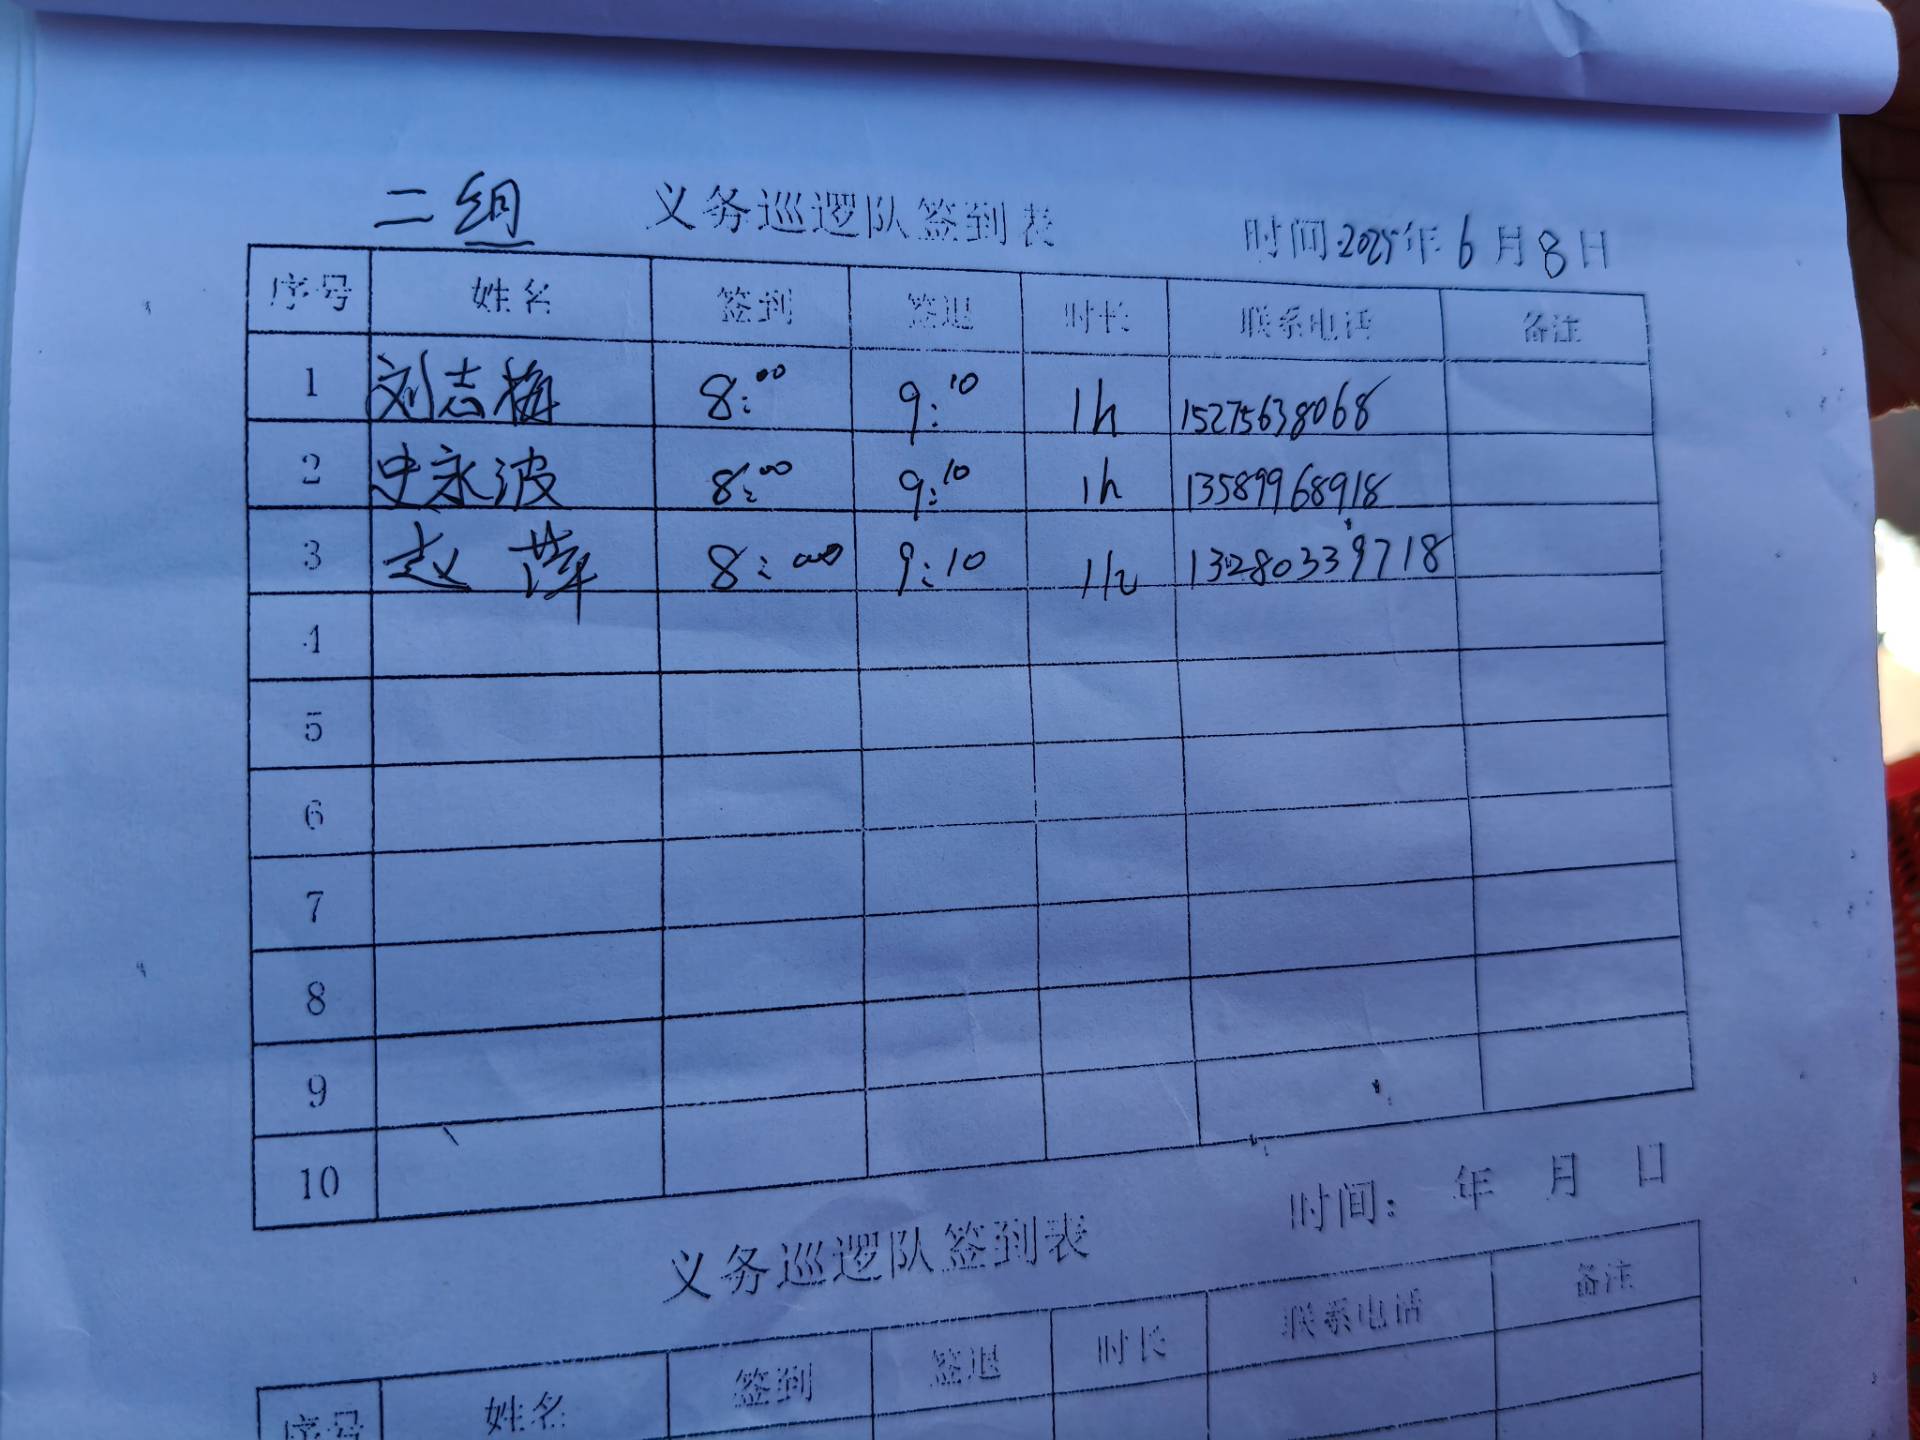 二组 义务巡逻队签到表 时间:2025年6月8日
序号 姓名 签到 签退 时长 联系电话 备注
1 刘志梅 8:00 9:10 1h 15275638068
2 史永波 8:00 9:10 1h 13589968918
3 赵萍 8:00 9:10 1h 13280339718
4
5
6
7
8
9
10
义务巡逻队签到表 时间: 年 月 日
序号 姓名 签到 签退 时长 联系电话 备注